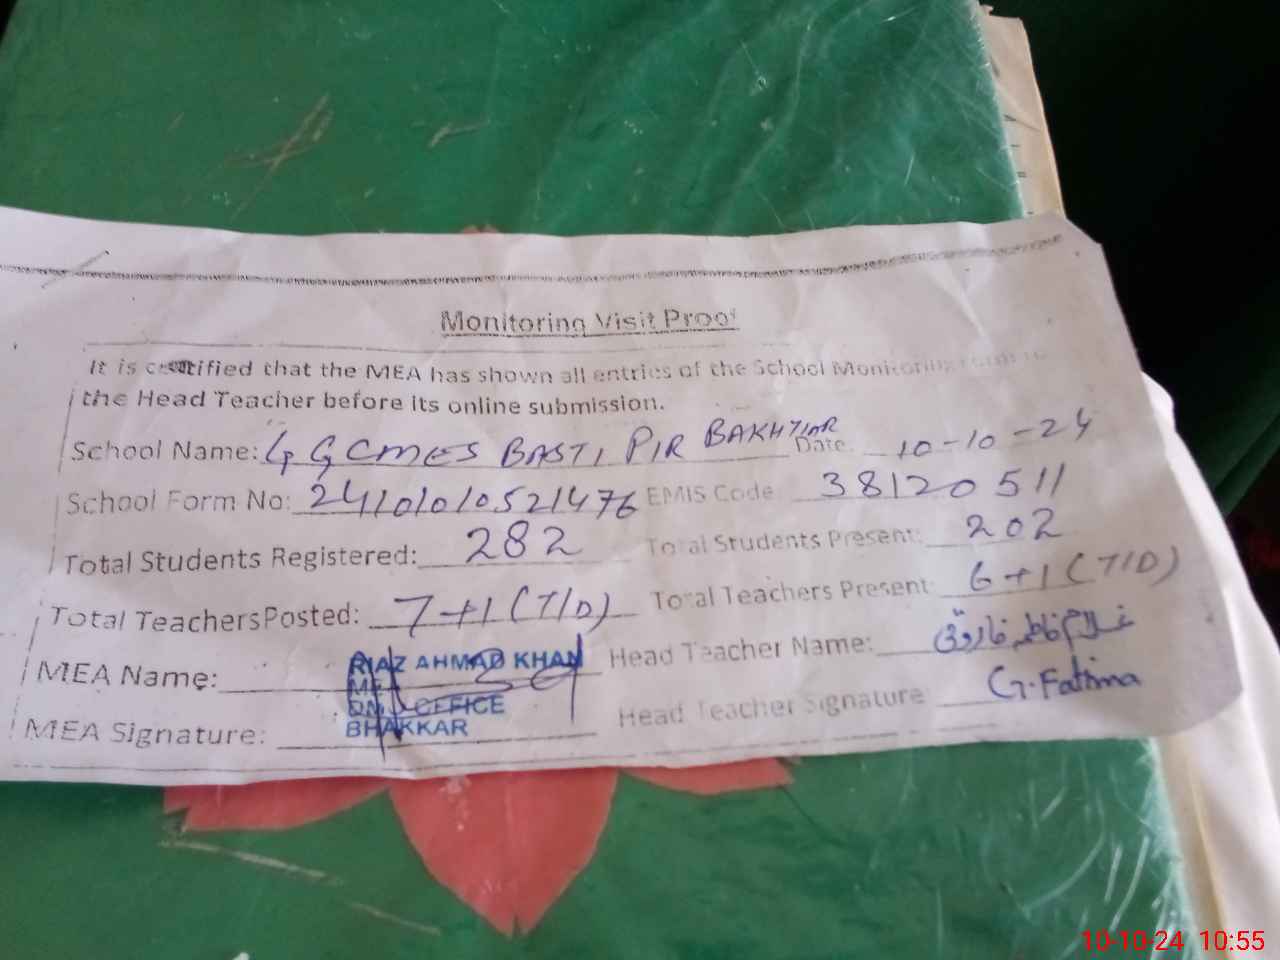 Monitoring Visit Proof
It is certified that the MEA has shown all entries of the School Monitoring Form to
the Head Teacher before its online submission.
School Name: GGCMES BASTI PIR BAKHTIAR Date: 10-10-24
School Form No: 24101010521476 EMIS Code: 38120511
Total Students Registered: 282 Total Students Present: 202
Total Teachers Posted: 7+1 (T/D) Total Teachers Present: 6+1 (T/D)
MEA Name: RIAZ AHMAD KHAN Head Teacher Name: غلام فاطمہ فاروق
OFFICE
BHAKKAR
MEA Signature: Head Teacher Signature G. Fatima
10-10-24 10:55